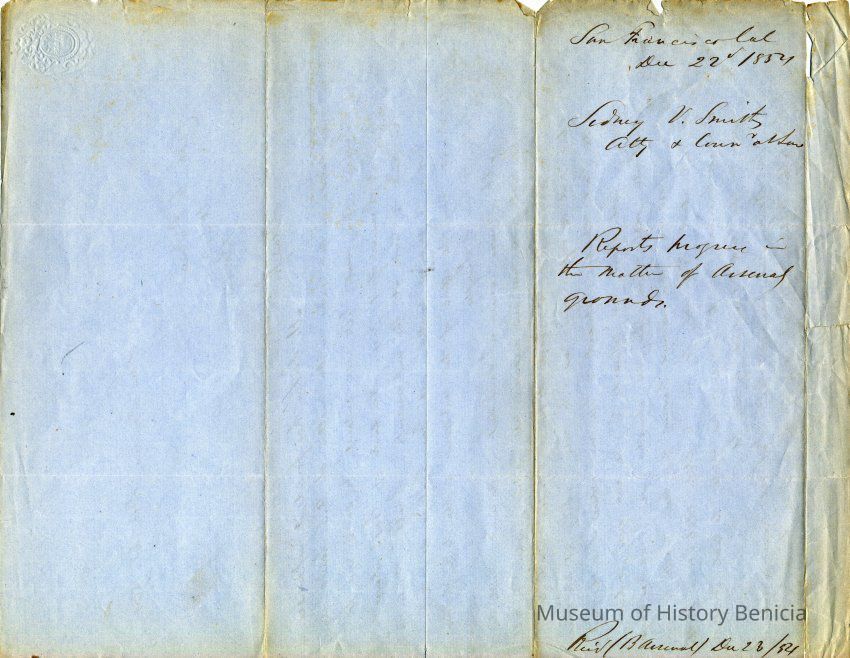 San Francisco Cal
Dec 22d 1854
Sidney V. Smith
Atty & Counr at Law
Reports progress in
the matter of Arsenal
grounds.
Museum of History Benicia
Recd (B Arsenal) Dec 23/54